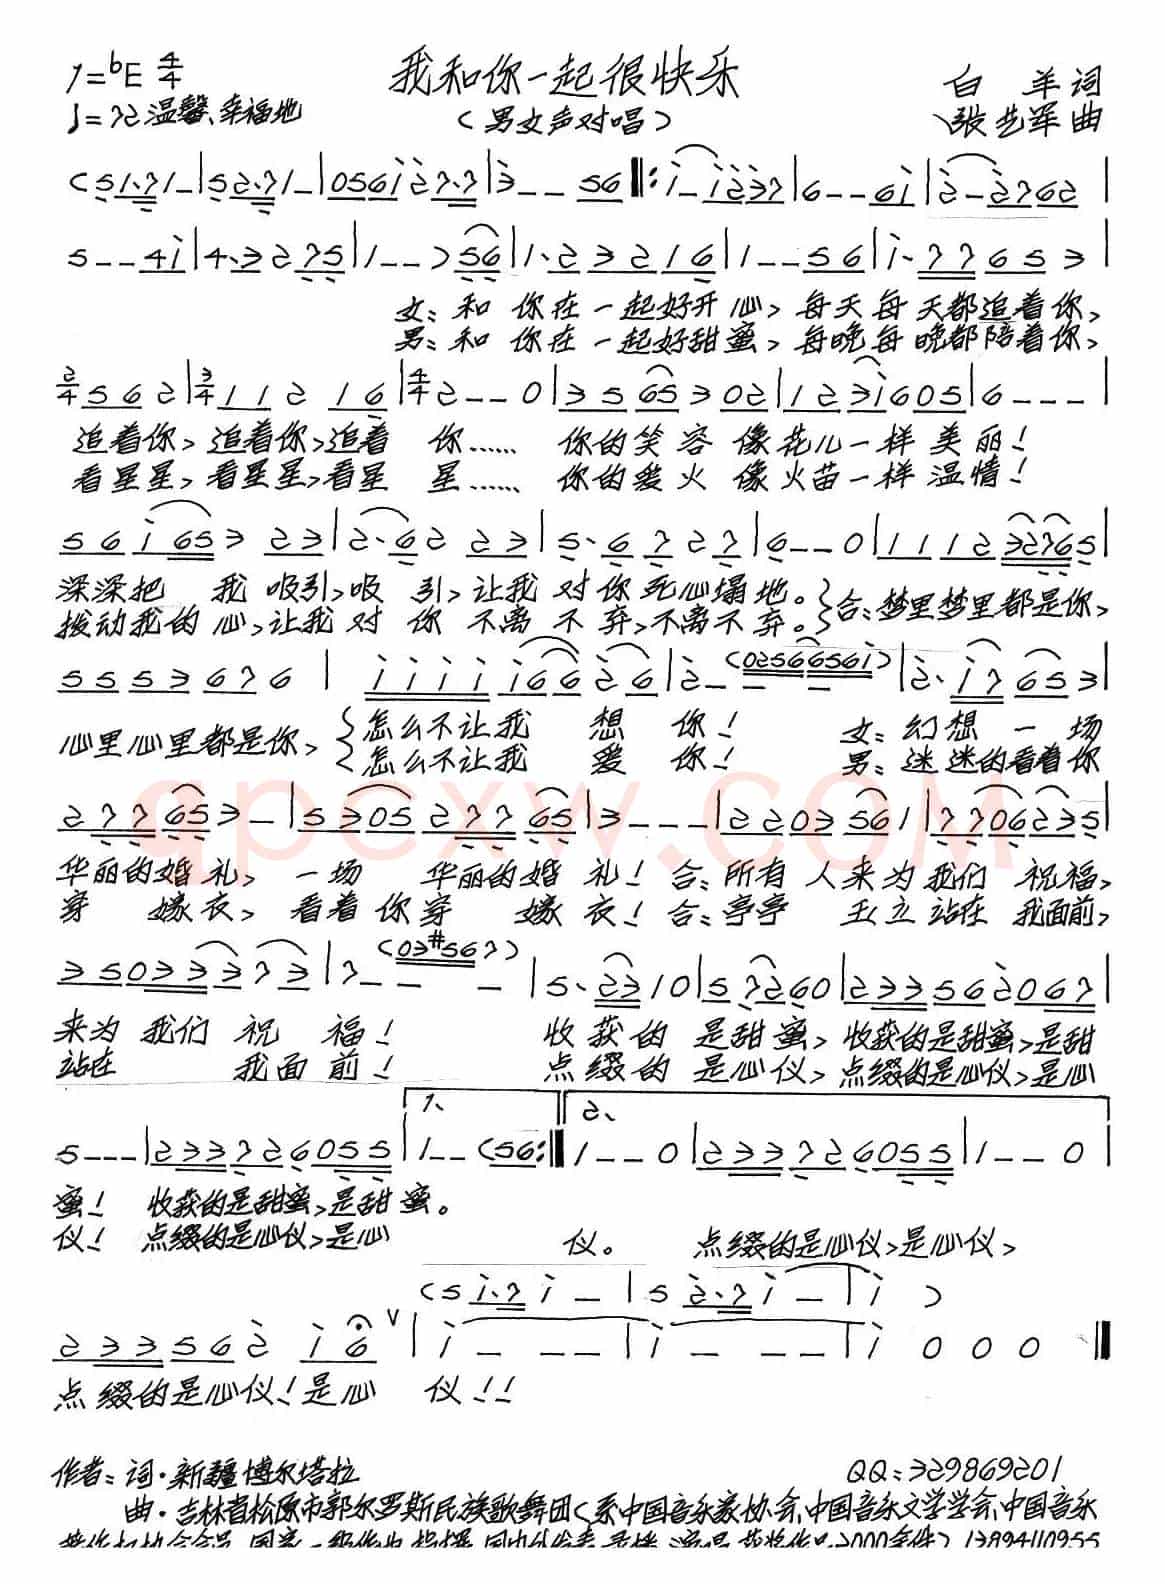 1=ᵇE 4/4
我和你一起很快乐
白 羊 词
♩=72 温馨、幸福地
（男女声对唱）
张艺军 曲
(5 1·7 1 - | 5 2·7 1 - | 0 5 6 i 2 7·7 | 3 - - 5 6 ‖: i - i 2 3 7 | 6 - - 6 i | 2 - 2 7 6 2 |
5 - - 4 i | 4·3 2 7 5 | 1 - - ) 5 6 | 1·2 3 2 1 6 | 1 - - 5 6 | i·7 7 6 5 3 |
女：和 你在一起好开心，每天每天都追着你，
男：和 你在一起好甜蜜，每晚每晚都陪着你，
2/4 5 6 2 | 3/4 1 1 2 1 6 | 4/4 2 - - 0 | 3 5 6 5 3 0 2 | 1 2 3 i 6 0 5 | 6 - - - |
追着你，追着你，追着 你…… 你的笑容 像花儿一样美丽！
看星星，看星星，看星 星…… 你的爱火 像火苗一样温情！
5 6 i 6 5 3 2 3 | 2·6 2 2 3 | 5·6 7 2 7 | 6 - - 0 | 1 1 1 2 3 2 7 6 5 |
深深把 我 吸引，吸 引，让我 对你死心塌地。 合：梦里梦里都是你，
拨动我的心，让我对 你 不离 不 弃，不离不弃。
5 5 5 3 6 7 6 | i i i i i 6 6 2 6 | 2 - (0 2 5 6 6 5 6 i) - | 2·i 7 6 5 3 |
心里心里都是你， 怎么不让我 想 你！ 女：幻想 一 场
怎么不让我 爱 你！ 男：迷迷的看着你
2 7 7 6 5 3 - | 5 3 0 5 2 7 7 6 5 | 3 - - - | 2 2 0 3 5 6 1 | 7 7 0 6 2 3 5 |
华丽的婚礼， 一场 华丽的婚 礼！合：所有 人来为我们 祝福，
穿 嫁衣， 看着你穿 嫁 衣！合：亭亭 玉立站在 我面前，
3 5 0 3 3 3 7 3 | 7 - (0 3 #5 6 7) - | 5·2 3 1 0 | 5 7 2 6 0 | 2 3 3 5 6 2 0 6 7 |
来为 我们 祝 福！ 收获的 是甜蜜，收获的是甜蜜，是甜
站在 我面前！ 点缀的 是心仪，点缀的是心仪，是心
5 - - - | 2 3 3 7 2 6 0 5 5 | 1. 1 - - (5 6 :‖ 2. 1 - - 0 | 2 3 3 7 2 6 0 5 5 | 1 - - 0 |
蜜！ 收获的是甜蜜，是甜 蜜。
仪！ 点缀的是心仪，是心 仪。 点缀的是心仪，是心仪，
(5 i·7 i - | 5 2·7 i - | i )
2 3 3 5 6 2 i 6 ∨ | i - - - | i - - - | i 0 0 0 ‖
点缀的是心仪！是心 仪！！
qpcxw.com
作者：词·新疆博尔塔拉
QQ：329869201
曲·吉林省松原市郭尔罗斯民族歌舞团（系中国音乐家协会、中国音乐文学学会、中国音乐